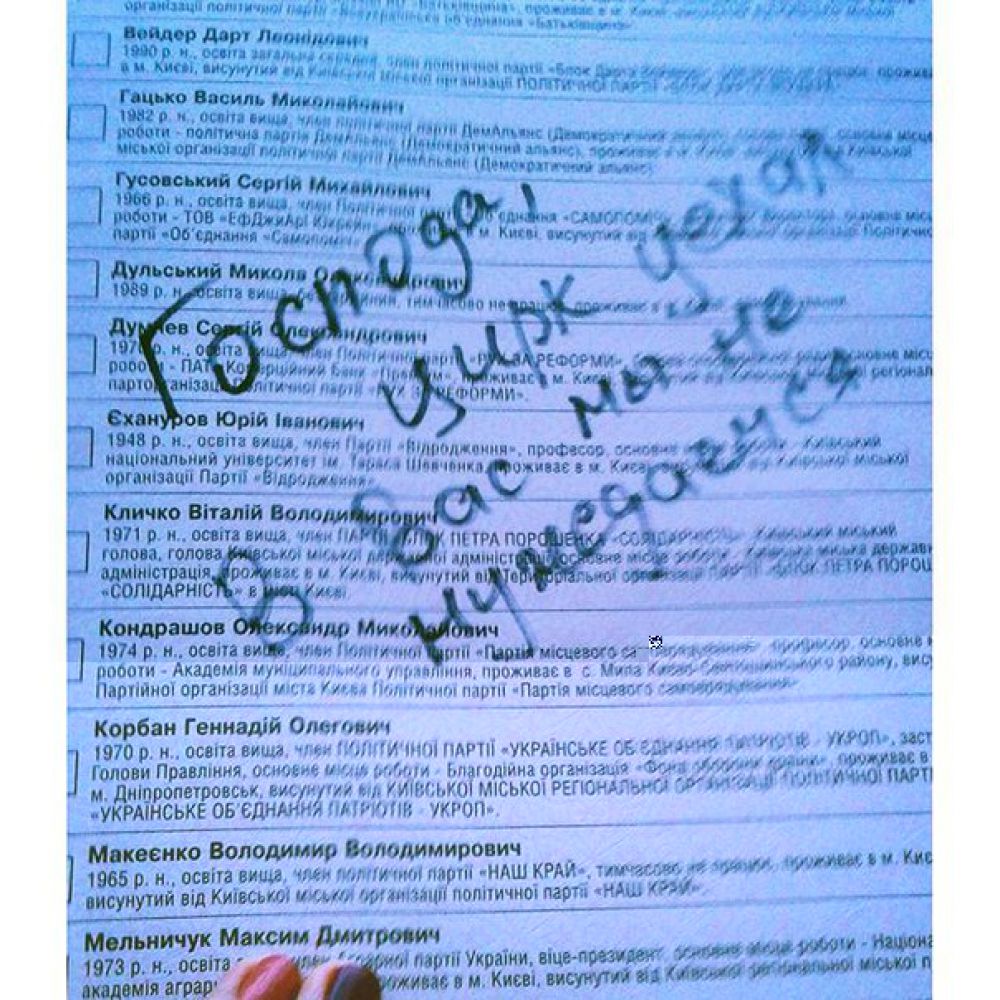 організації політичної партії
Вейдер Дарт Леонідович
1990 р. н., освіта загальна середня, член політичної партії «Блок Дарта
в м. Києві, висунутий від Київської міської організації ПОЛІТИЧНОЇ ПАРТІЇ
Гацько Василь Миколайович
1982 р. н., освіта вища, член політичної партії ДемАльянс (Демократичний
роботи - політична партія ДемАльянс (Демократичний альянс), проживає в м.
міської організації політичної партії ДемАльянс (Демократичний альянс)
Гусовський Сергій Михайлович
1966 р. н., освіта вища, член Політичної «САМОПОМІЧ»
роботи - ТОВ «ЕфДжиАрі в м. Києві, висунутий від
партії «Об'єднання «Самопоміч»
Дульський Микола Олександрович
1989 р. н., освіта вища, тимчасово не працює, проживає в м.
Думчев Сергій Олександрович
197 р. н., освіта вища, член Політичної партії «РУХ ЗА РЕФОРМИ», основне місце
роботи - ПАТ Комерційний Банк проживає в м. Києві, висунутий від регіональ
парторганізації політичної партії «РУХ ЗА РЕФОРМИ».
Єхануров Юрій Іванович
1948 р. н., освіта вища, член Партії «Відродження», професор, основне місце роботи - Київський
національний університет ім. Тараса Шевченка, проживає в м. Києві, висунутий від Київської міської
організації Партії «Відродження»
Кличко Віталій Володимирович
1971 р. н., освіта вища, член ПАРТІЇ «БЛОК ПЕТРА ПОРОШЕНКА «СОЛІДАРНІСТЬ», Київський міський
голова, голова Київської міської державної адміністрації, основне місце роботи - Київська міська державн
адміністрація, проживає в м. Києві, висунутий від Територіальної організації ПАРТІЇ «БЛОК ПЕТРА ПОРОШ
«СОЛІДАРНІСТЬ» в місті Києві
Кондрашов Олександр Миколайович
1974 р. н., освіта вища, член Політичної партії «Партія місцевого самоврядування», професор, основне м
роботи - Академія муніципального управління, проживає в с. Мила Києво-Святошинського району, вису
Партійної організації міста Києва Політичної партії «Партія місцевого самоврядування»
Корбан Геннадій Олегович
1970 р. н., освіта вища, член ПОЛІТИЧНОЇ ПАРТІЇ «УКРАЇНСЬКЕ ОБ'ЄДНАННЯ ПАТРІОТІВ - УКРОП», заст
Голови Правління, основне місце роботи - Благодійна організація «Фонд оборони країни», проживає в
м. Дніпропетровськ, висунутий від КИЇВСЬКОЇ МІСЬКОЇ РЕГІОНАЛЬНОЇ ОРГАНІЗАЦІЇ ПОЛІТИЧНОЇ ПАРТІ
«УКРАЇНСЬКЕ ОБ'ЄДНАННЯ ПАТРІОТІВ - УКРОП».
Макеєнко Володимир Володимирович
1965 р. н., освіта вища, член політичної партії «НАШ КРАЙ», тимчасово не працює, проживає в м. Києв
висунутий від Київської міської організації політичної партії «НАШ КРАЙ».
Мельничук Максим Дмитрович
1973 р. н., освіта член Аграрної партії України, віце-президент, основне місце роботи - Націона
академія аграр проживає в м. Києві, висунутий від Київської регіональної міської п
Господа,
цирк уехал
В Вас мы не
нуждаемся